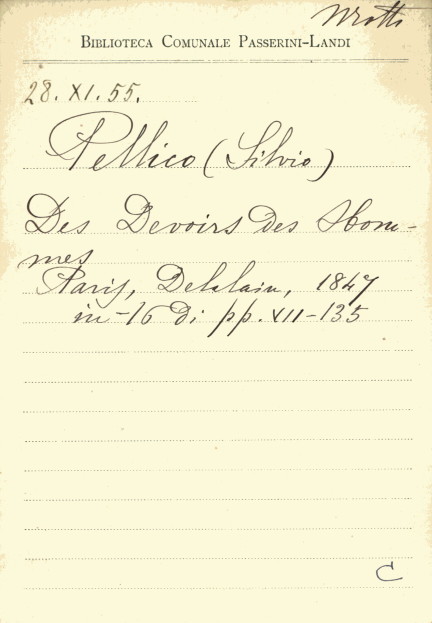 BIBLIOTECA COMUNALE PASSERINI-LANDI
28. XI. 55.
Pellico (Silvio)
Des Devoirs des Hom-
mes
Paris, Delalain, 1847
in-16 di pp. XII-135
C